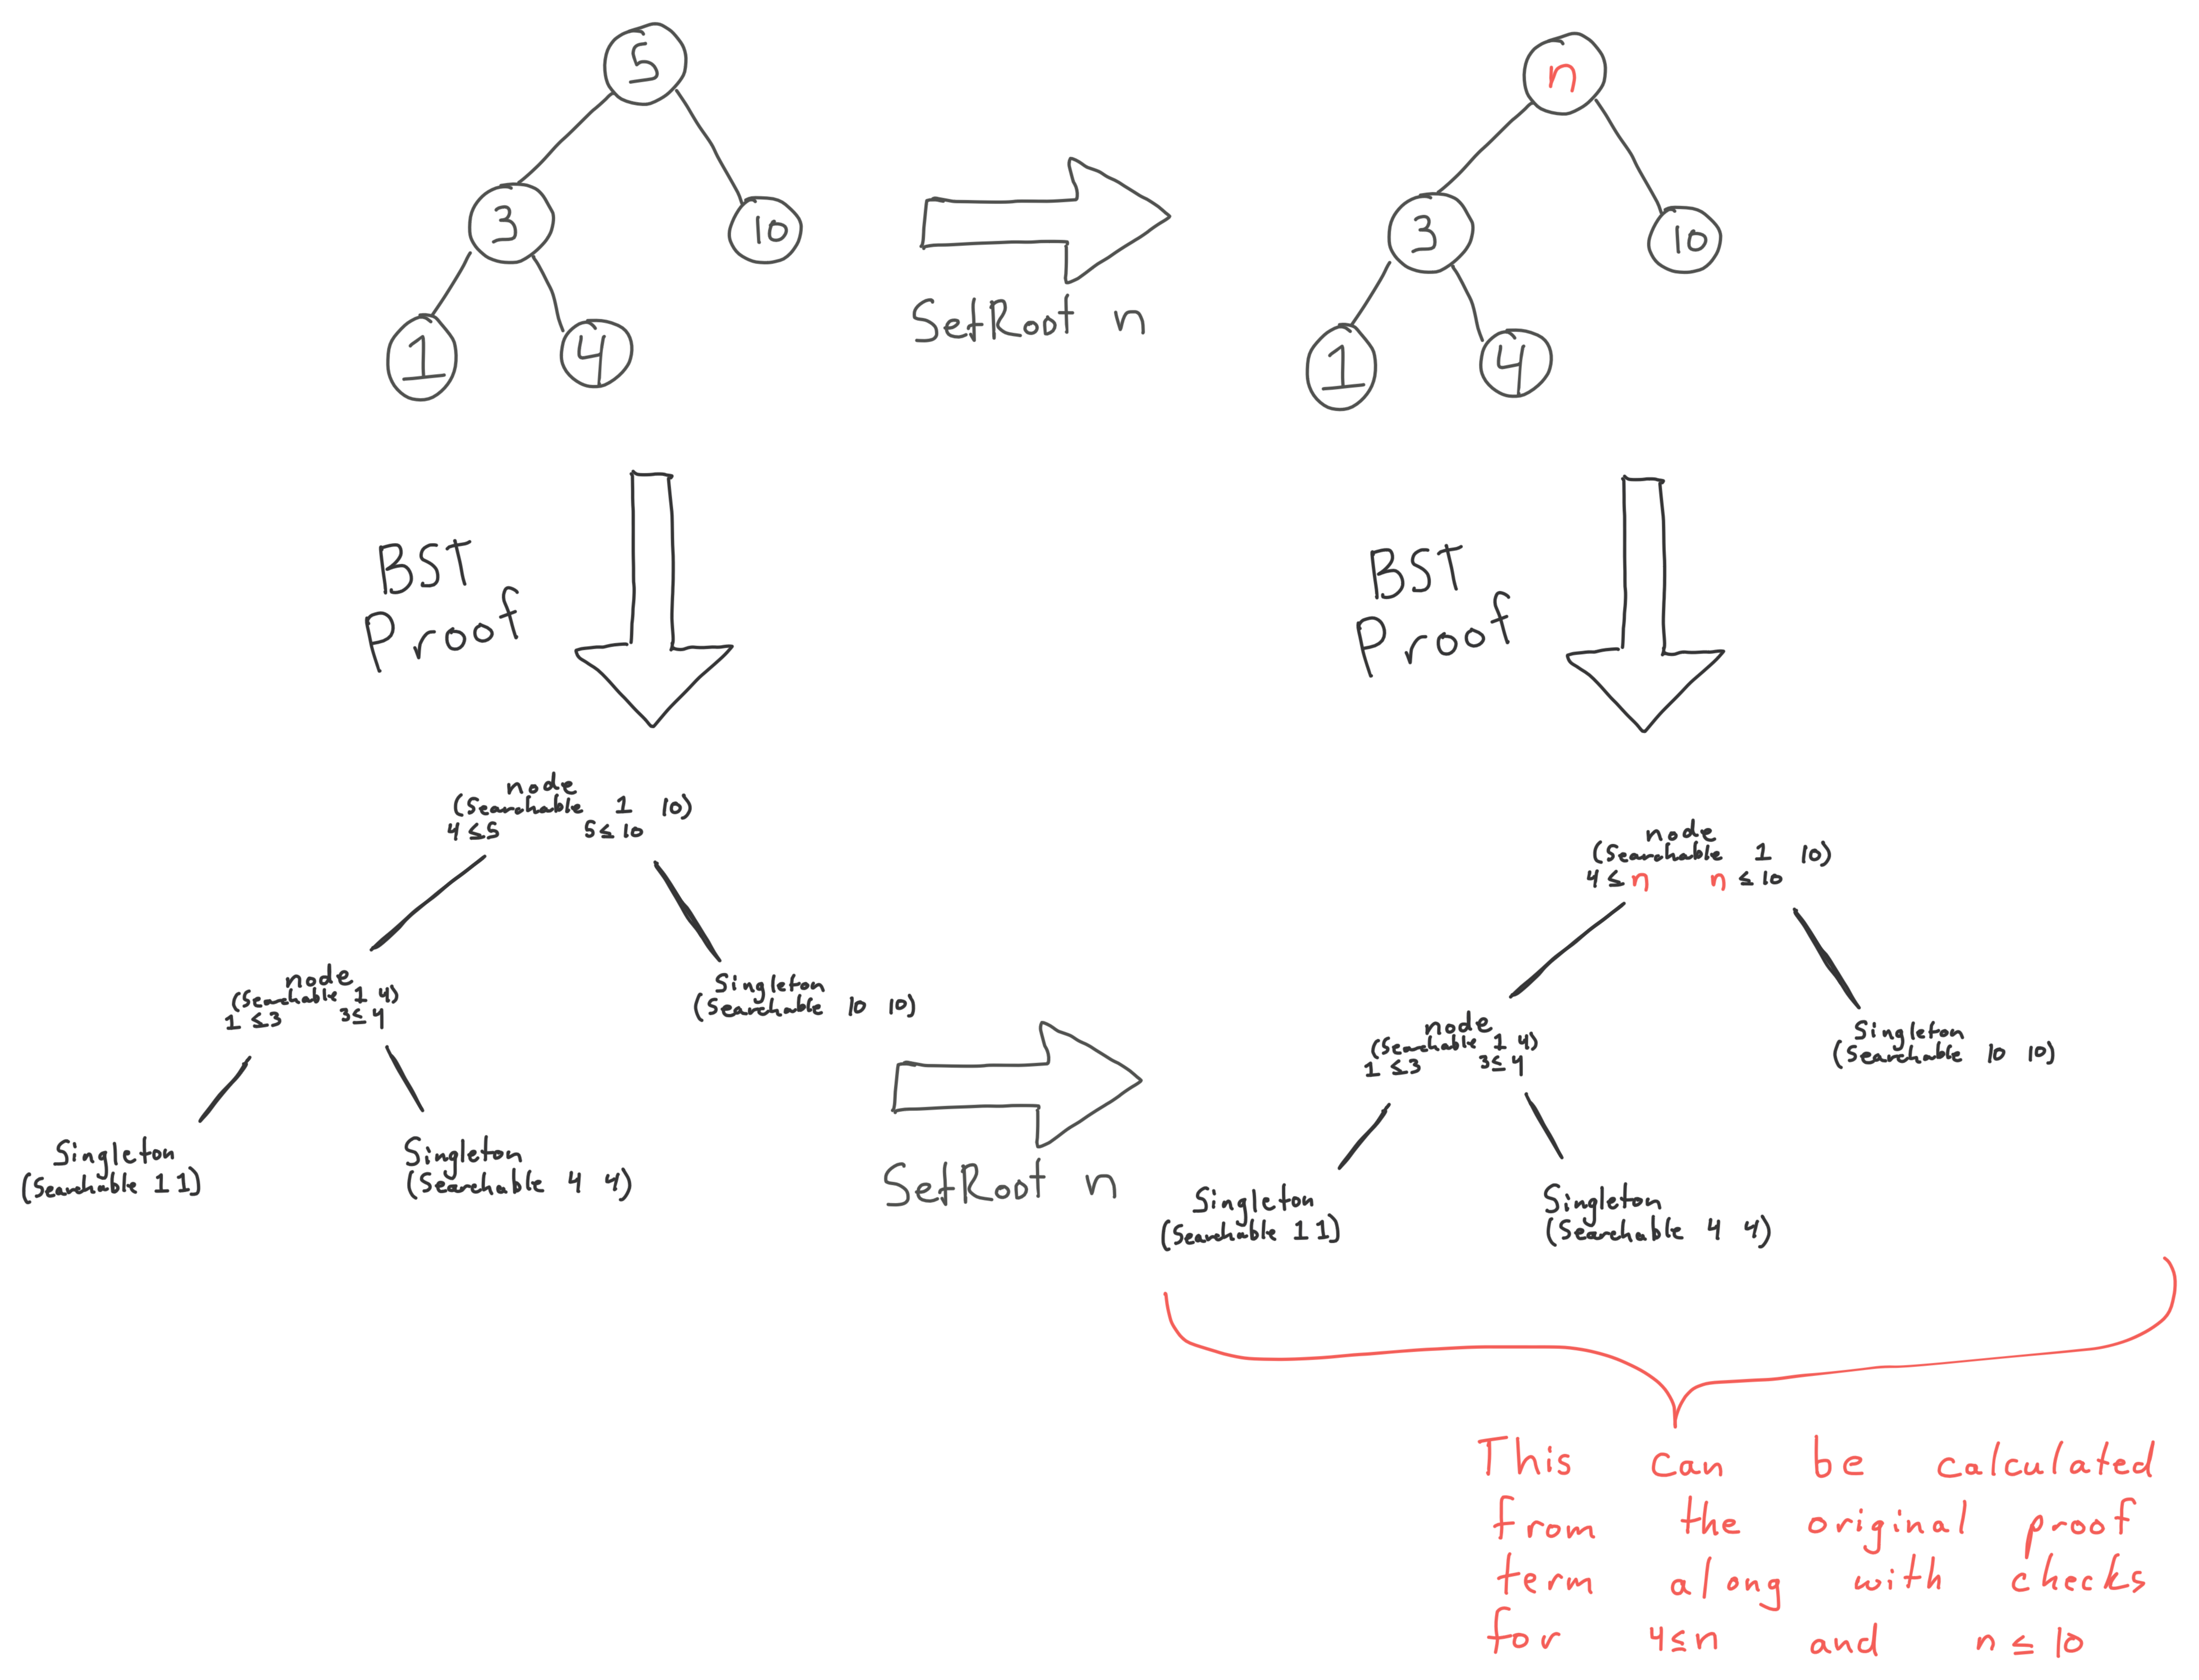 5
3
10
1
4
SetRoot n
n
3
10
1
4
BST
Proof
BST
Proof
node
(Searchable 1 10)
4 ≤ 5 5 ≤ 10
node
(Searchable 1 4)
1 ≤ 3 3 ≤ 4
Singleton
(Searchable 10 10)
Singleton
(Searchable 1 1)
Singleton
(Searchable 4 4)
SetRoot n
node
(Searchable 1 10)
4 ≤ n n ≤ 10
node
(Searchable 1 4)
1 ≤ 3 3 ≤ 4
Singleton
(Searchable 10 10)
Singleton
(Searchable 1 1)
Singleton
(Searchable 4 4)
This can be calculated
from the original proof
term along with checks
for 4 ≤ n and n ≤ 10